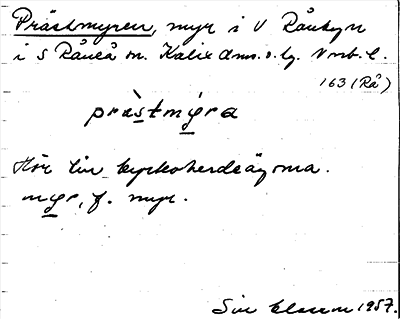 Prästmyren, myr i V Rånbyn
i S Råneå sn. Kalix dms. o. tg. Nrrb. l.
163 (Rå)
prästmýra
Hör till kyrkoherdeägorna.
myr, f. myr.
1957.